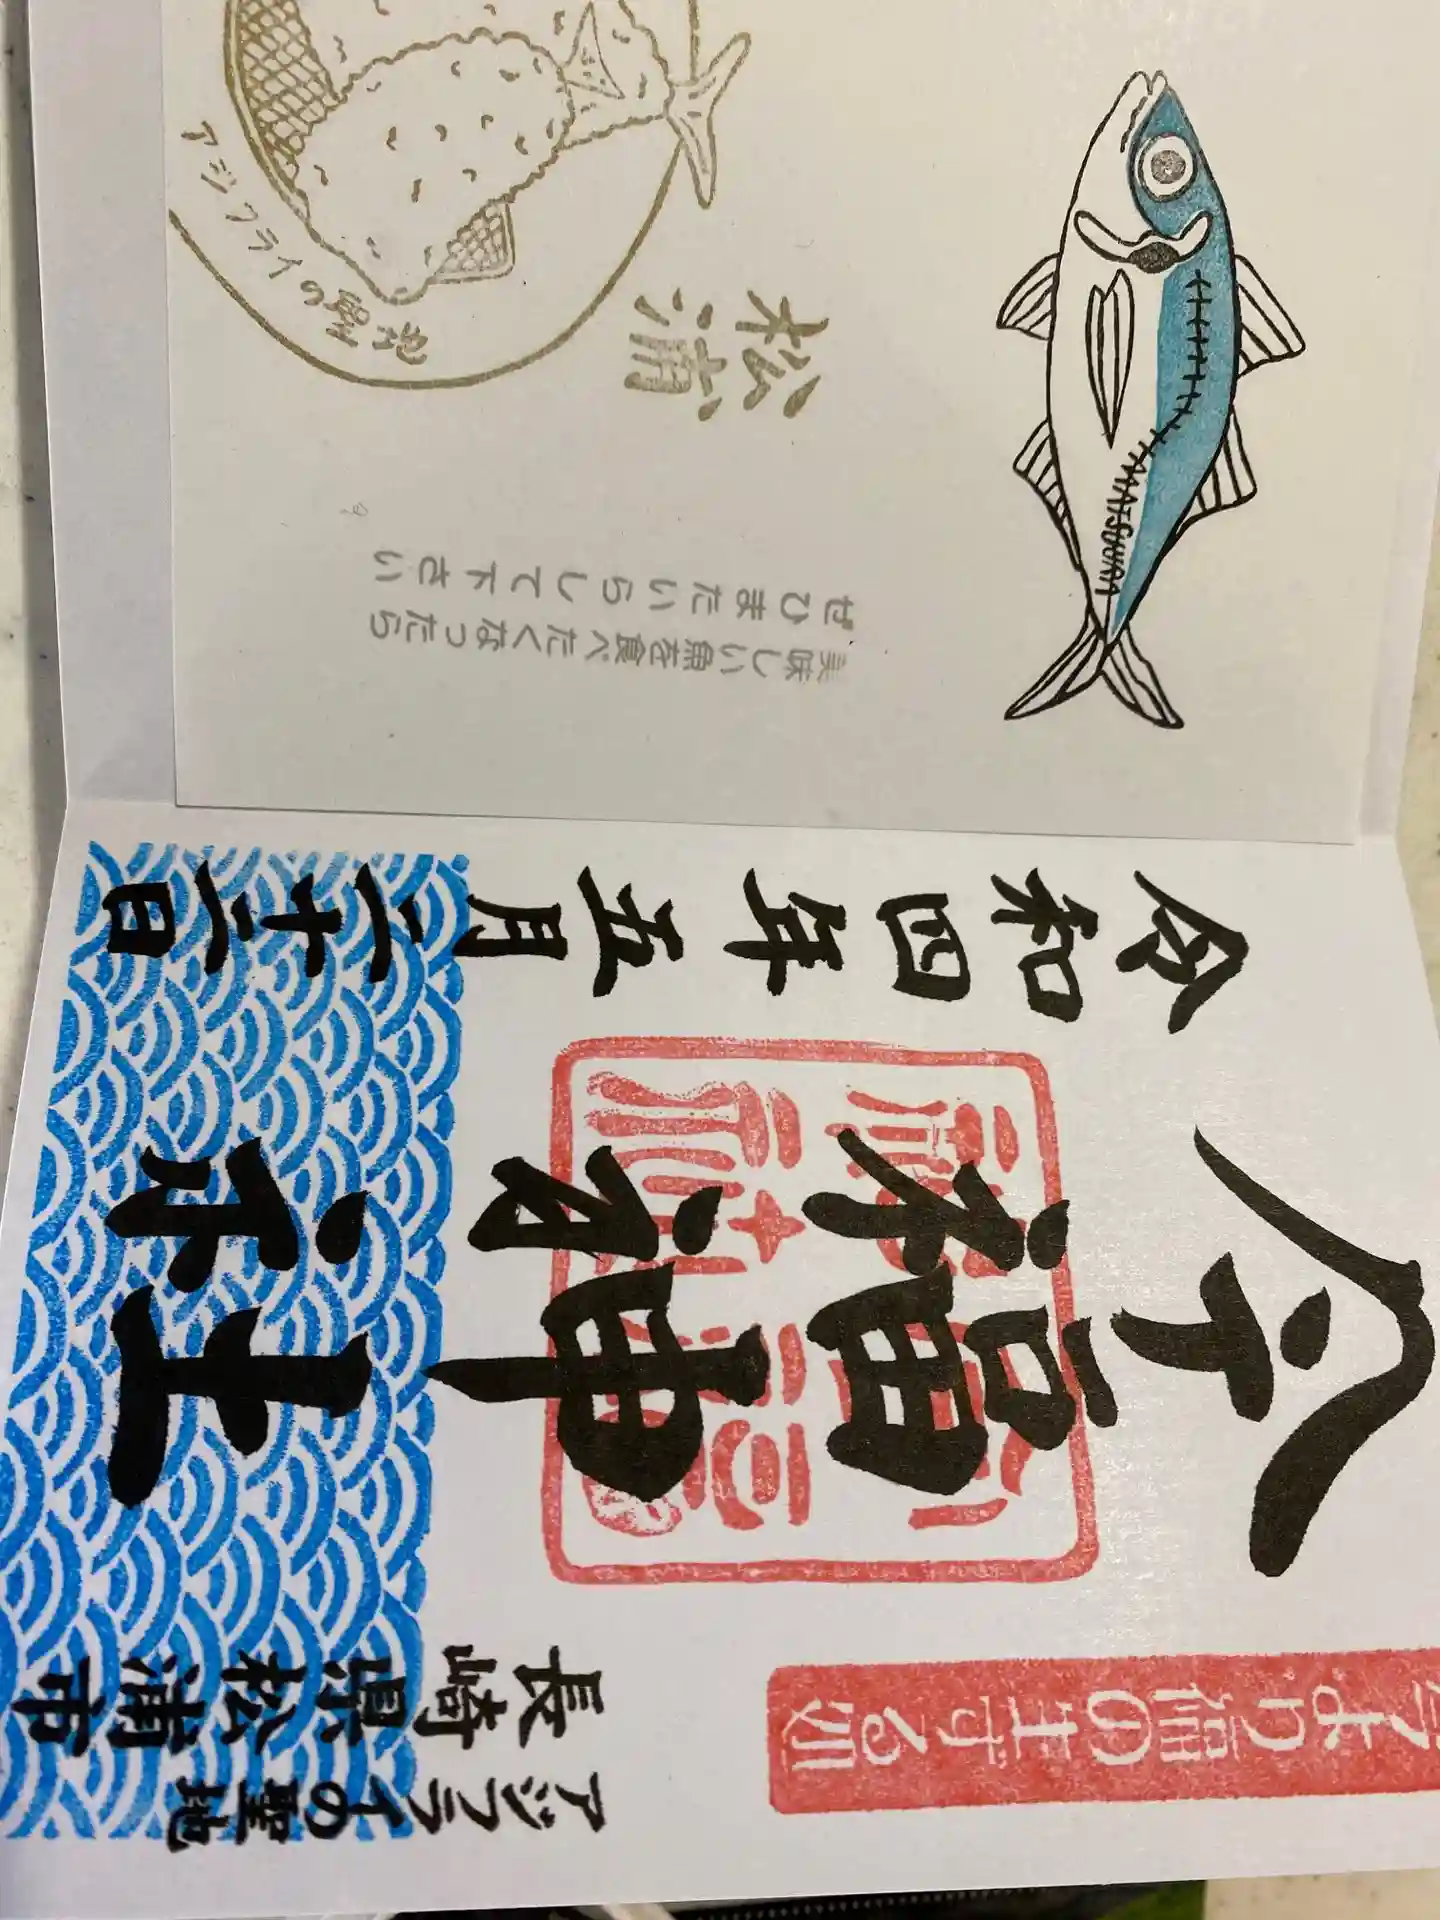 今より福の生ずる処
アジフライの聖地
長崎県松浦市
今福神社
令和四年五月二十二日
美味しい魚を食べたくなったら
ぜひまたいらして下さい
松浦
アジフライの聖地
MATSUURA